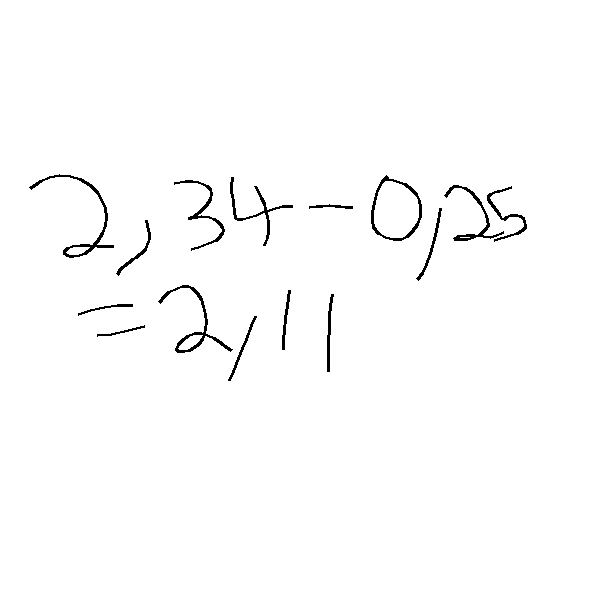 2,34-0,25
=2,11